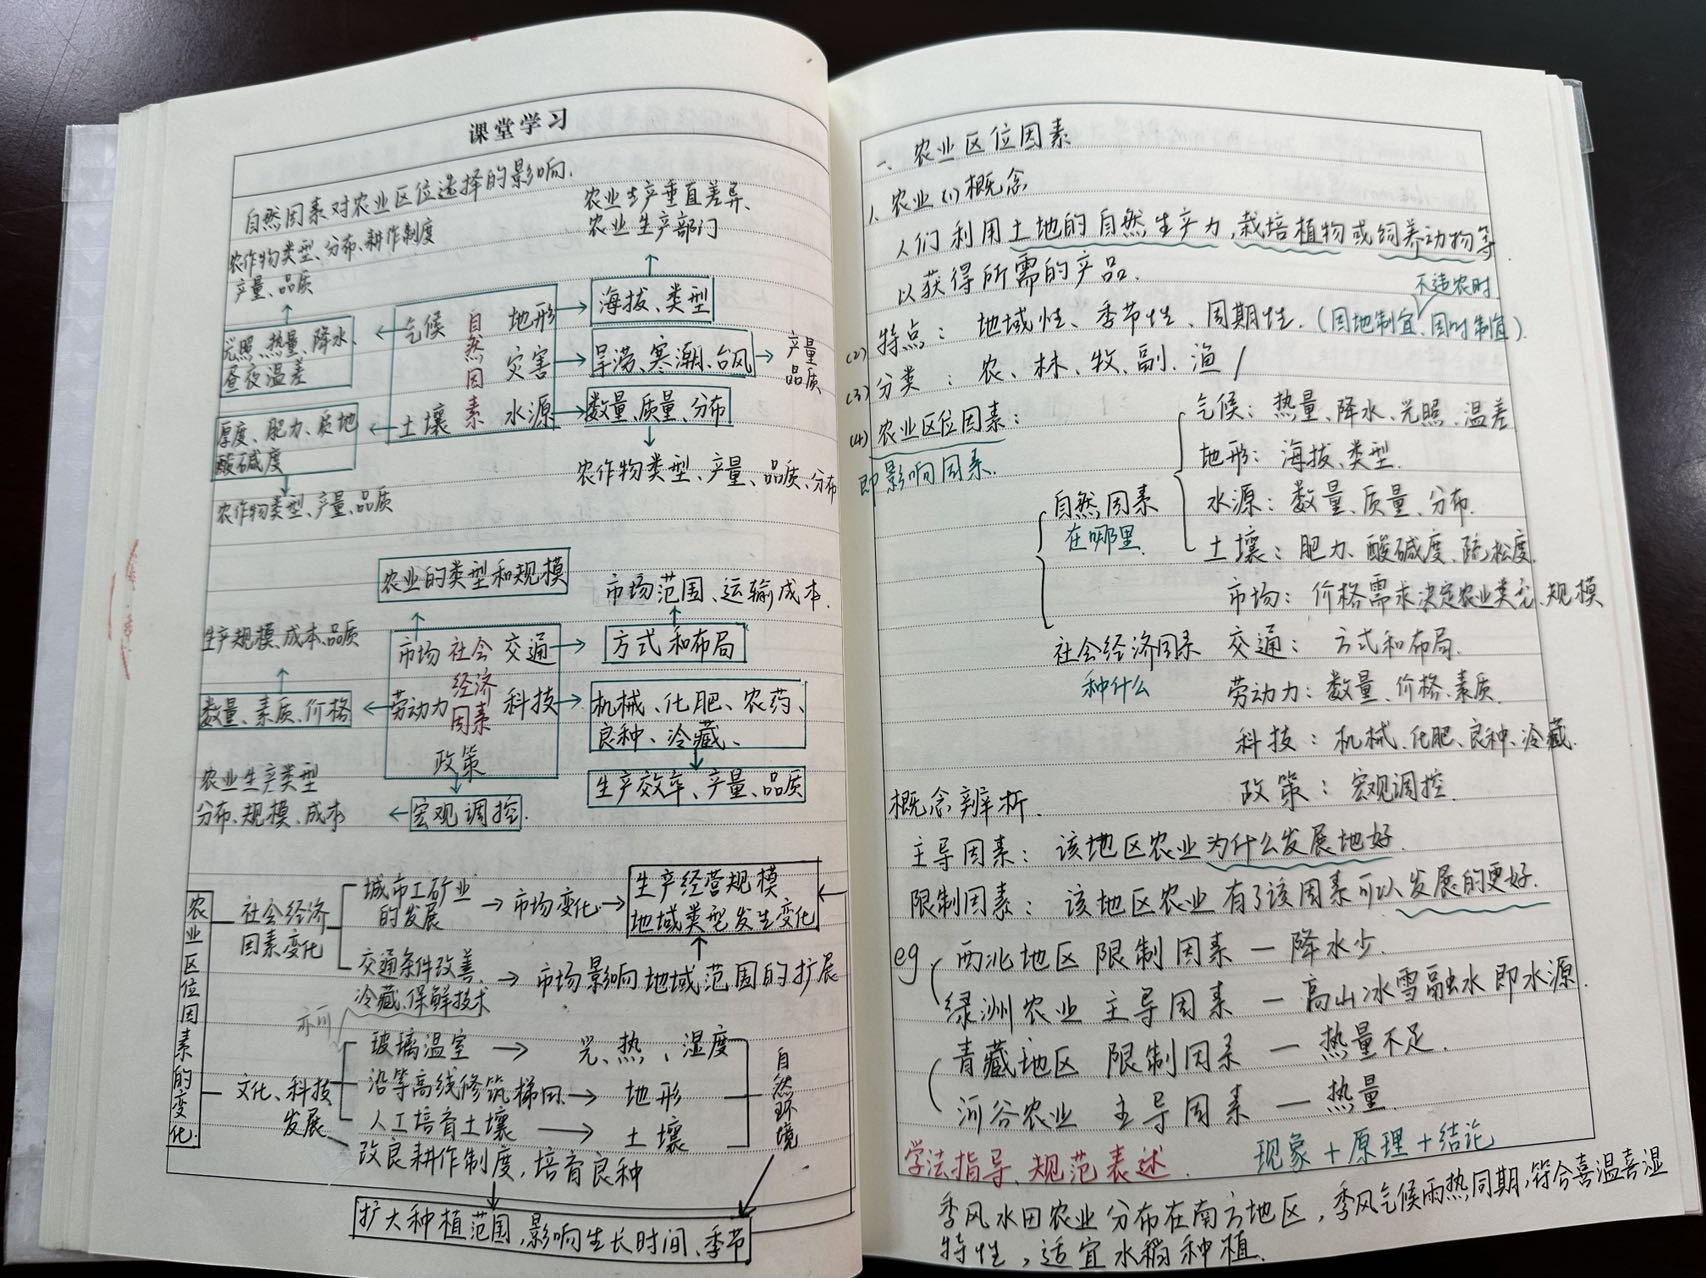 课堂学习
自然因素对农业区位选择的影响.
农业生产垂直差异、
农业生产部门
农作物类型、分布、耕作制度
产量、品质
光照、热量、降水、
昼夜温差
气候
自然因素
地形
海拔、类型
灾害
旱涝、寒潮、台风
产量
品质
厚度、肥力、质地
酸碱度
土壤
水源
数量、质量、分布
农作物类型、产量、品质、分布
农作物类型、产量、品质
农业的类型和规模
市场范围、运输成本.
生产规模、成本、品质
市场
社会
经济
因素
交通
方式和布局
数量、素质、价格
劳动力
科技
机械、化肥、农药、
良种、冷藏、
政策
生产效率、产量、品质
农业生产类型
分布、规模、成本
宏观调控.
农业区位因素的变化.
社会经济
因素变化
城市工矿业
的发展
市场变化
生产经营规模、
地域类型发生变化
交通条件改善,
冷藏、保鲜技术
市场影响地域范围的扩展
文化、科技
发展
玻璃温室
光、热、湿度
沿等高线修筑梯田
地形
人工培育土壤
土壤
自然环境
改良耕作制度,培育良种
扩大种植范围,影响生长时间、季节
一、农业区位因素
1、农业 (1) 概念
人们利用土地的自然生产力,栽培植物或饲养动物等
以获得所需的产品.
不违农时
(2) 特点: 地域性、季节性、周期性.(因地制宜、因时制宜).
(3) 分类: 农、林、牧、副、渔
(4) 农业区位因素:
即影响因素.
自然因素
在哪里
气候: 热量、降水、光照、温差
地形: 海拔、类型.
水源: 数量、质量、分布.
土壤: 肥力、酸碱度、疏松度.
社会经济因素
种什么
市场: 价格需求决定农业类型、规模
交通: 方式和布局.
劳动力: 数量、价格、素质.
科技: 机械、化肥、良种、冷藏.
政策: 宏观调控.
概念辨析.
主导因素: 该地区农业为什么发展地好.
限制因素: 该地区农业有了该因素可以发展的更好.
eg
西北地区 限制因素 — 降水少.
绿洲农业 主导因素 — 高山冰雪融水即水源.
青藏地区 限制因素 — 热量不足.
河谷农业 主导因素 — 热量.
学法指导、规范表述.
现象+原理+结论
季风水田农业分布在南方地区,季风气候雨热同期,符合喜温喜湿
特性,适宜水稻种植.